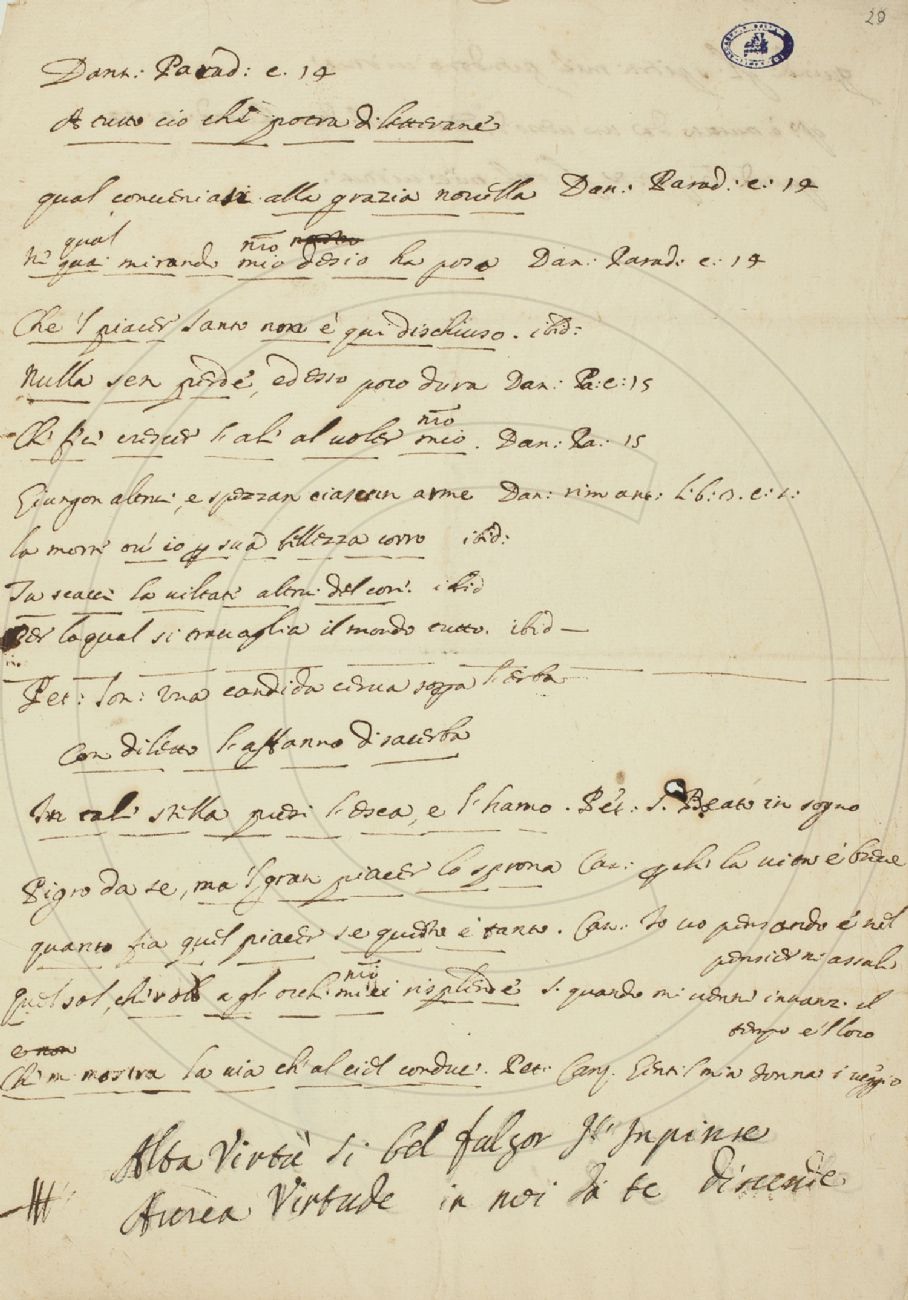 20
Dant: Parad: c. 14
A tutto ciò che potrà dilettarne
qual conveniasi alla grazia novella Dan: Parad: c: 14
qual nro nostro
N' qua mirando mio desio ha posa Dan: Parad: c: 14
Che 'l piacer santo non è qui dischiuso. ibid:
Nulla sen perde, ed esso poco dura Dan: Pa: c: 15
nro
Che fei crescer l'ali al voler mio. Dan: Pa: 15
Giungon altrui, e spezzan ciascun arme Dan: rim ant: lib: 3. c: 1:
la morte ov' io p sua bellezza corro ibid:
Tu scacci la viltate altrui del core. ibid
Per la qual si travaglia il mondo tutto. ibid —
Pet: Son: Una candida cerva sopra l'erba
Con diletto l'affanno disacerba
In tale stella presi l'esca, e l'hamo. Pet: S. Beato in sogno
Pigro da se, ma 'l gran piacer lo sprona Can: p che la vita è breve
quanto fia quel piacer se questo è tanto. Can: Io vo pensando è nel
pensier m'assale
nri
quel sol, che solo agl' occhi miei risplende S. quando mi venne innanz. il
tempo e 'l loco
e non
Che mi mostra la via ch'al ciel conduce. Pet: Canz. Gentil mia donna i veggio
Alta Virtù si bel fulgor v'inpinse
Aurea Virtude in noi da te discende